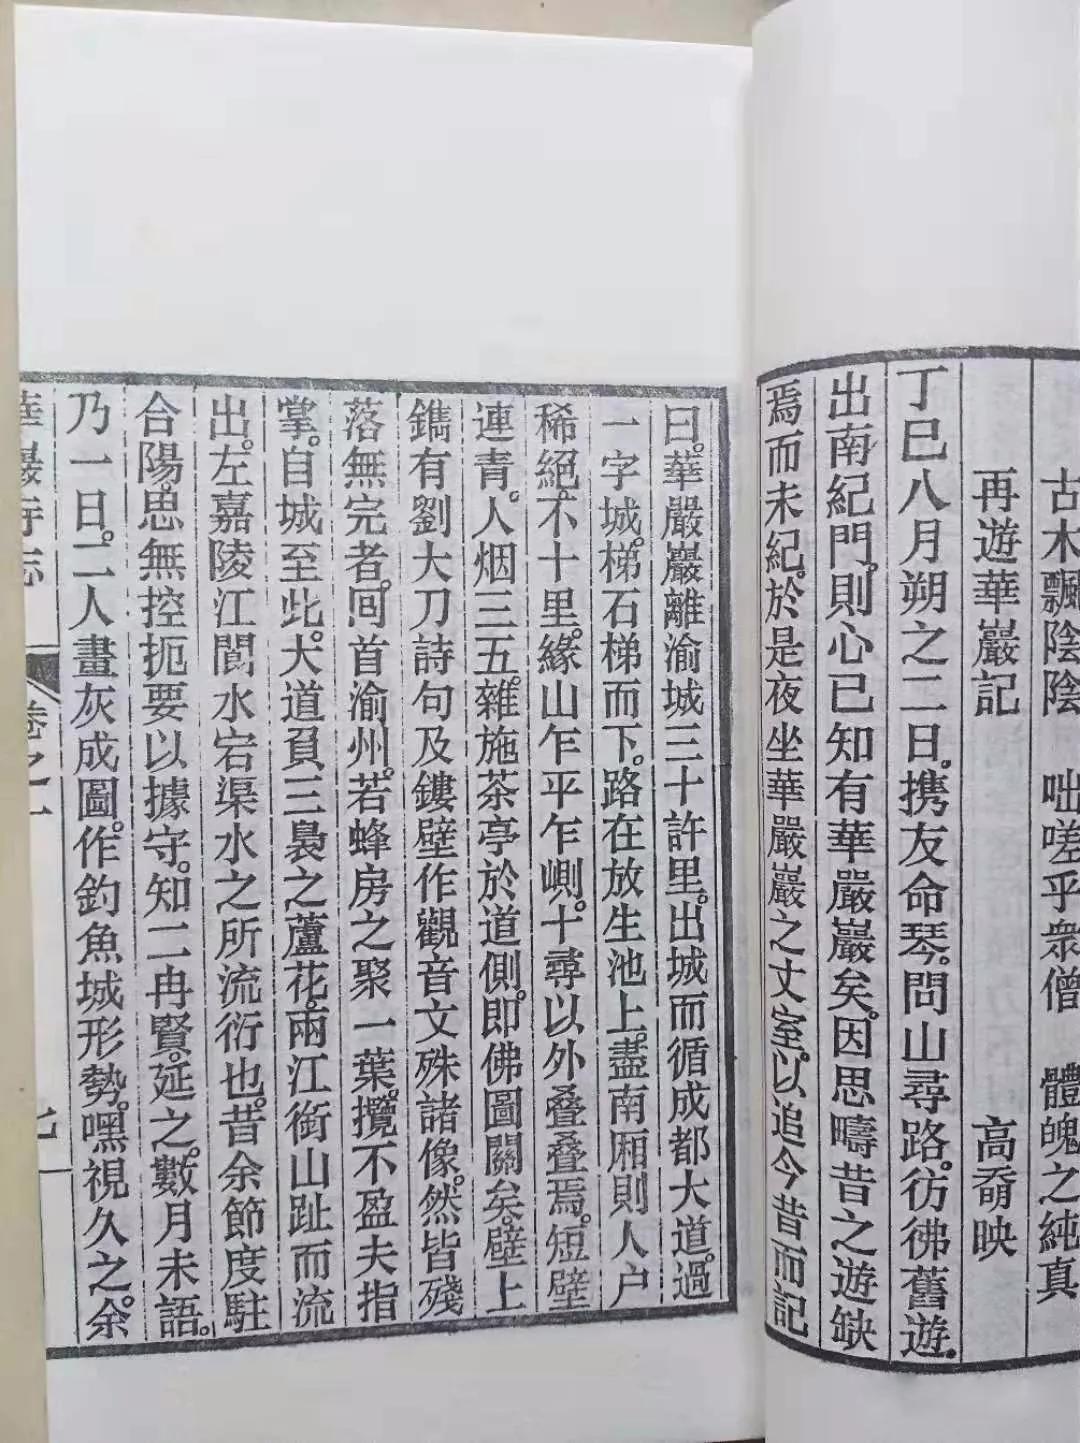 古木飄陰陰 咄嗟乎衆僧 體魄之純真
再遊華巖記 高奣映
丁巳八月朔之二日。携友命琴。問山尋路。彷彿舊遊。
出南紀門。則心已知有華嚴巖矣。因思疇昔之遊缺
焉而未紀。於是夜坐華嚴巖之丈室。以追今昔而記
曰。華嚴巖離渝城三十許里。出城而循成都大道。過
一字城。梯石梯而下。路在放生池上。盡南厢則人户
稀絕。不十里。緣山乍平乍崱。十尋以外叠叠焉。短壁
連青。人烟三五。雜施茶亭於道側。即佛圖關矣。壁上
鐫有劉大刀詩句及鏤壁作觀音文殊諸像。然皆殘
落無完者。囘首渝州。若蜂房之聚一葉。攬不盈夫指
掌。自城至此。大道頁三裊之蘆花。兩江銜山趾而流
出。左嘉陵江閬水宕渠水之所流衍也。昔余節度駐
合陽。思無控扼要以據守。知二冉賢。延之。數月未語。
乃一日。二人畫灰成圖。作釣魚城形勢。嘿視久之。余
華嚴寺志 卷之一 七